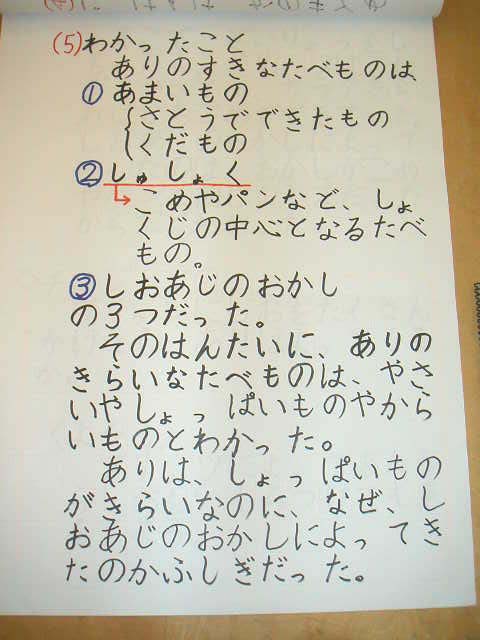 (5)わかったこと
ありのすきなたべものは、
①あまいもの
〜さとうでできたもの
〜くだもの
②しゅしょく
→こめやパンなど、しょ
くじの中心となるたべ
もの。
③しおあじのおかし
の3つだった。
そのはんたいに、ありの
きらいなたべものは、やさ
いやしょっぱいものやから
いものとわかった。
ありは、しょっぱいもの
がきらいなのに、なぜ、し
おあじのおかしによってき
たのかふしぎだった。